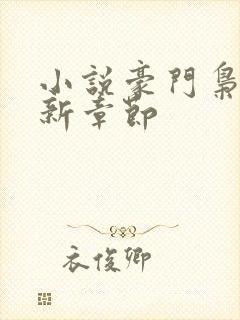 小說豪門梟
新章節
衣俊卿